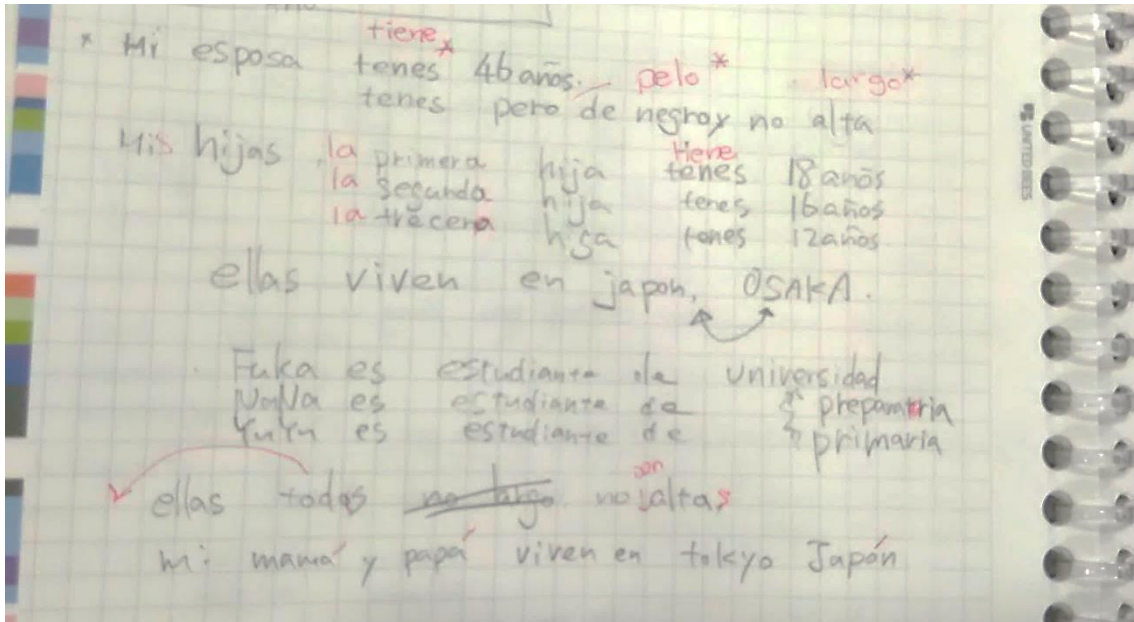 tiene*
* Mi esposa tenes 46 años. pelo* largo*
tenes pero de negroy no alta
Mis hijas la primera hija tenes 18 años
tiene
la segunda hija tenes 16 años
la trecera hija tenes 12 años
ellas viven en japon, OSAKA.
Fuka es estudiante de universidad
NaNa es estudiante de preparatria
YuYu es estudiante de primaria
ellas todas no largo no altas
son
mi mamá y papá viven en tokyo Japón